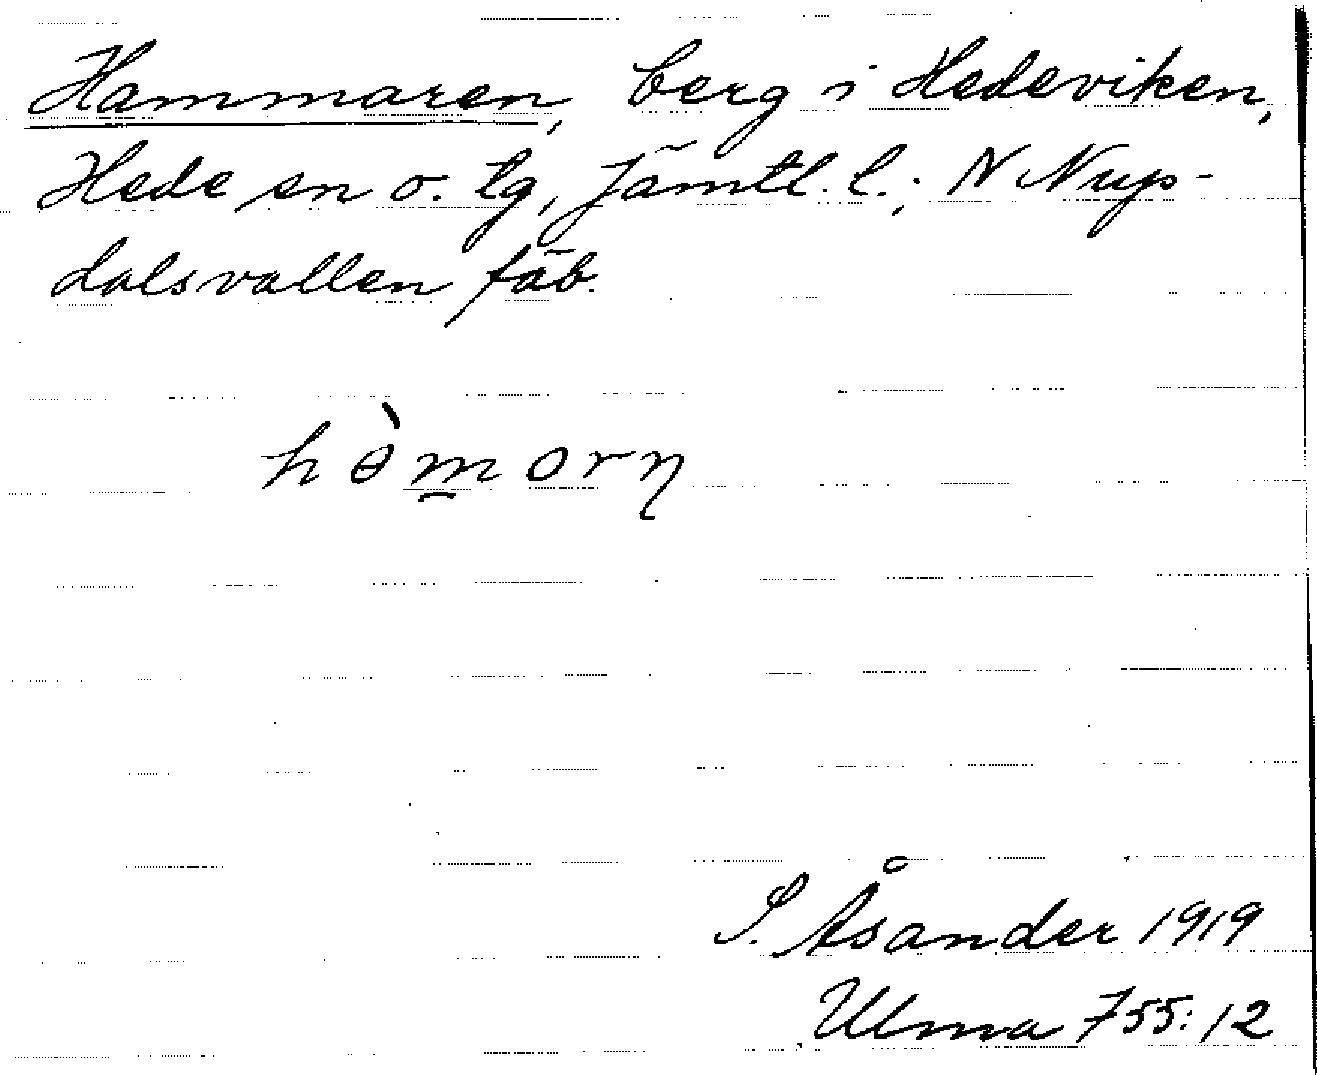 Hammaren, berg i Hedeviken,
Hede sn o. tg, Jämtl. l.; N Nyp-
dalsvallen fäb.
hòm̱orŋ
S. Åsander 1919
Ulma 755:12